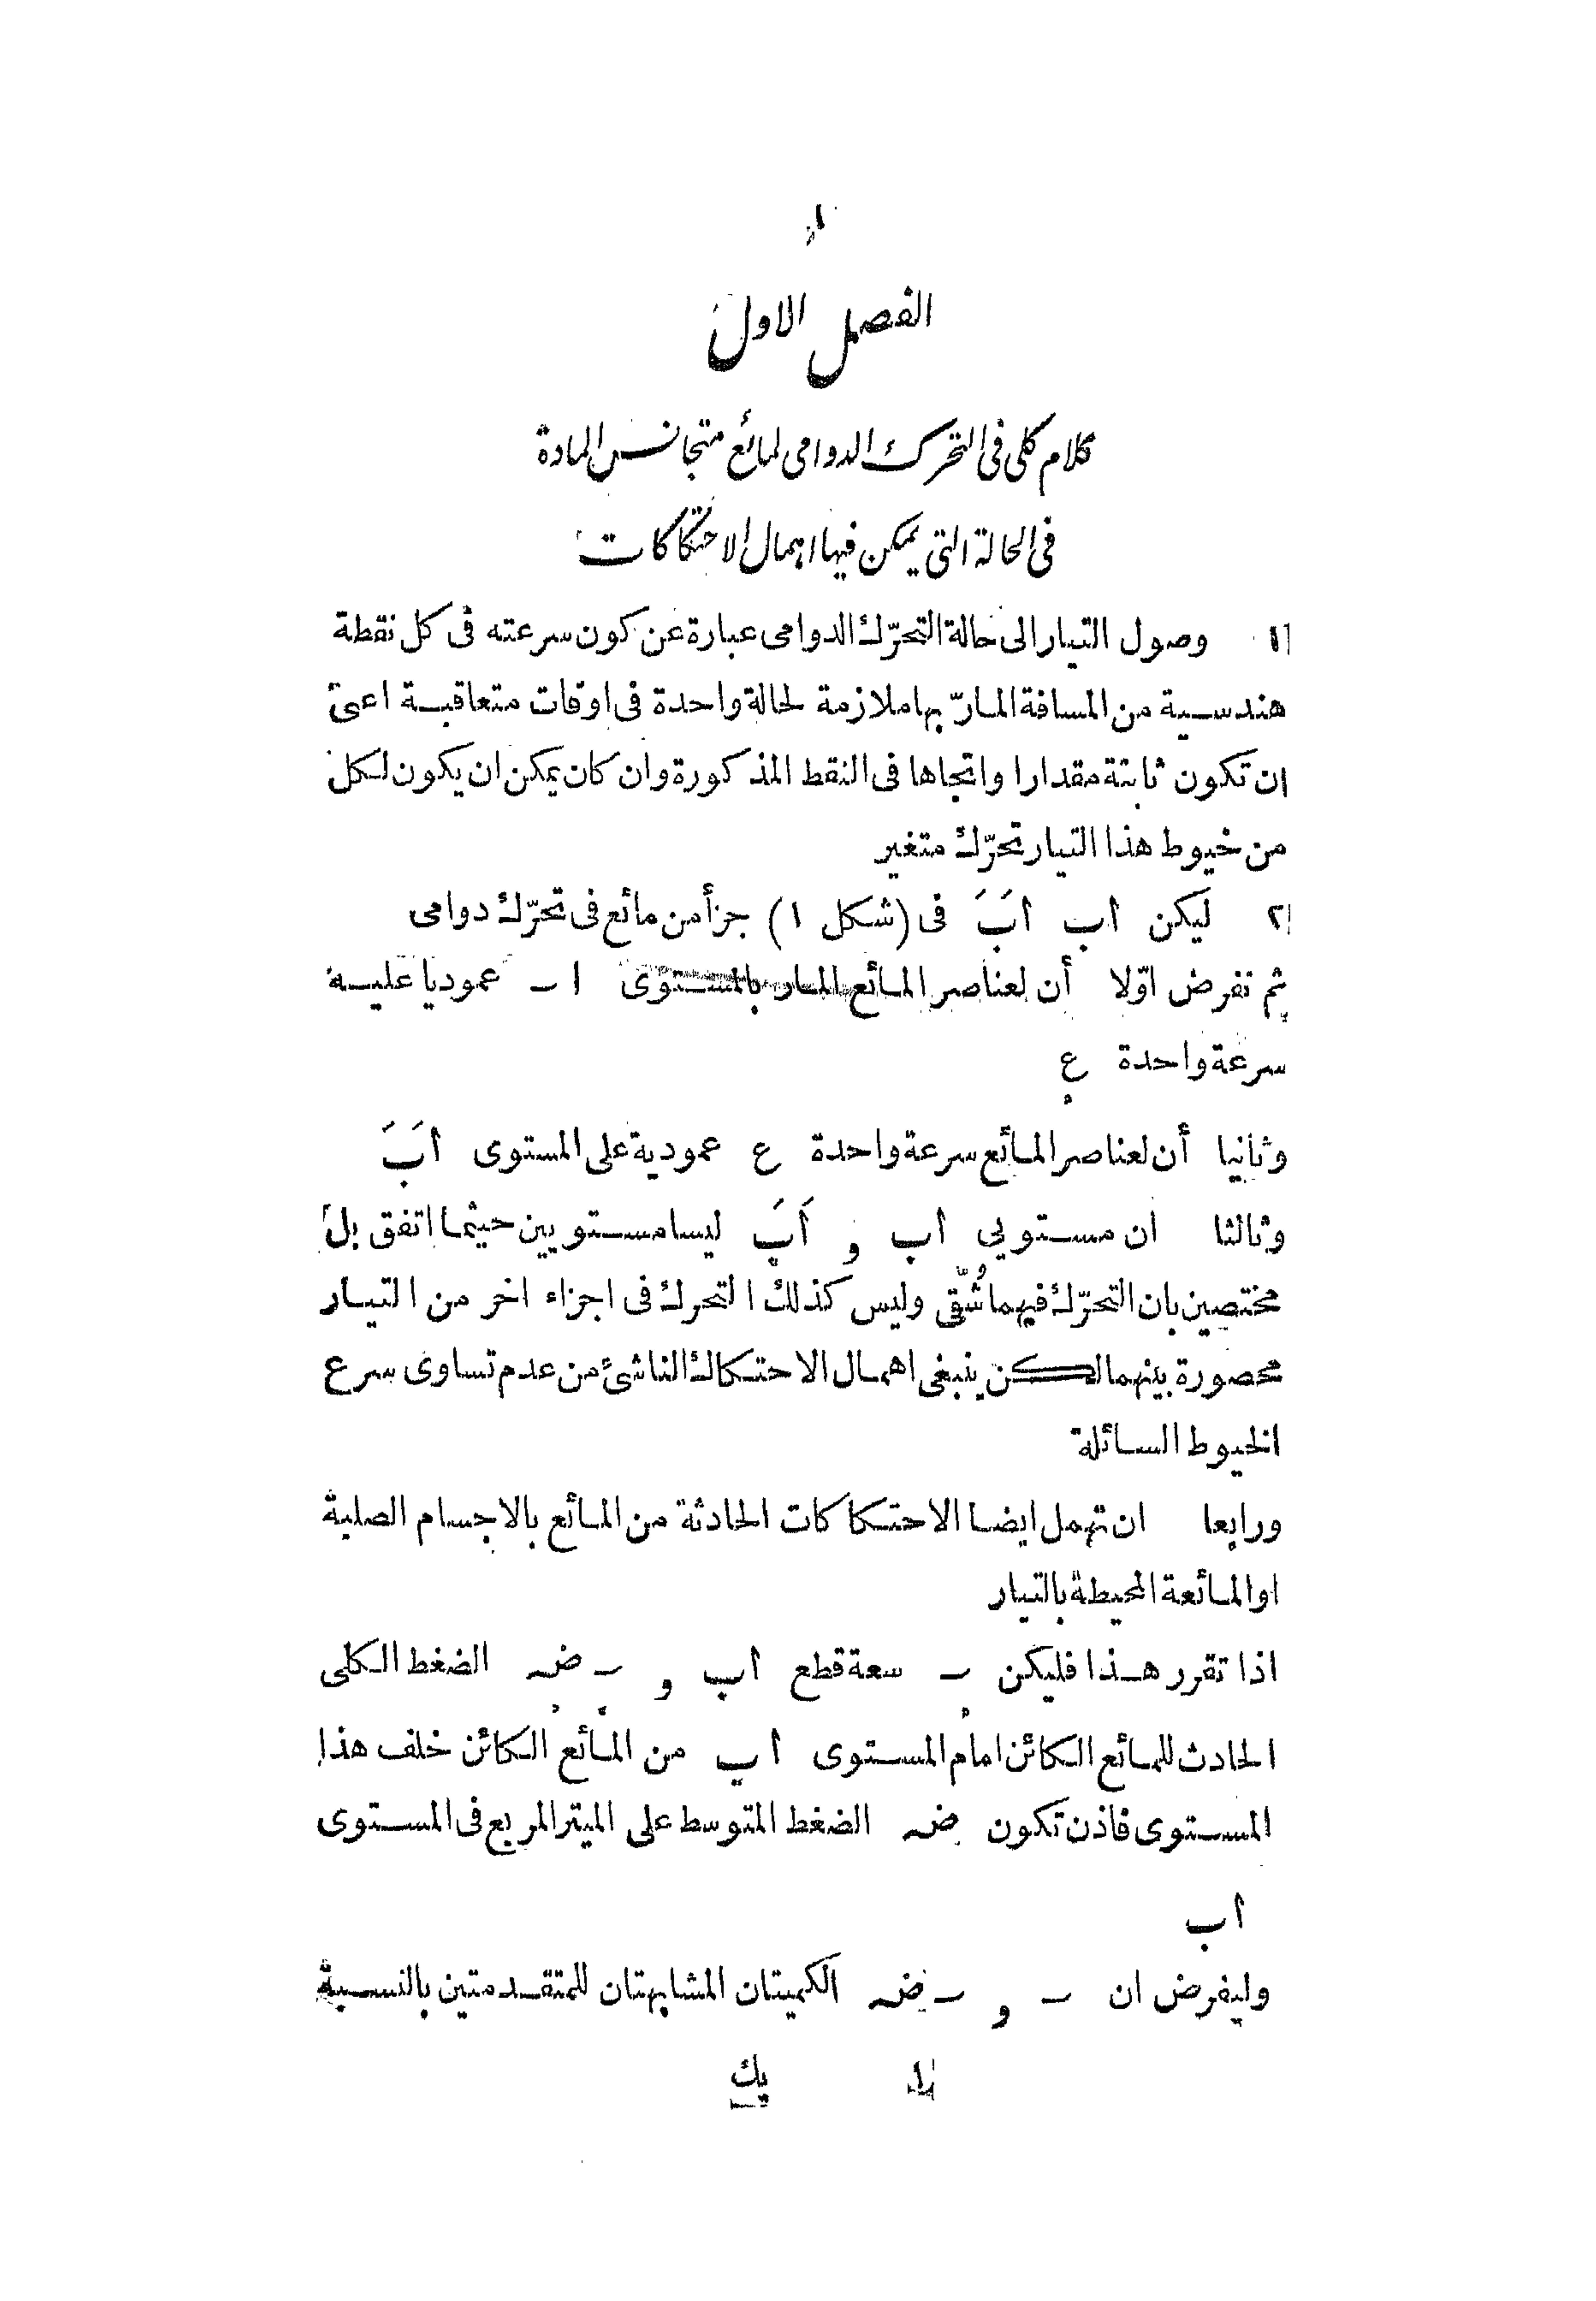 ١
الفصل الاول
كلام كلى فى التحرك الدوامى لمائع متجانس المادة
فى الحالة التى يمكن فيها اهمال الاحتكاكات
١ وصول التيار الى حالة التحرّك الدوامى عبارة عن كون سرعته فى كل نقطة
هندسية من المسافة المارّ بها ملازمة لحالة واحدة فى اوقات متعاقبة اعنى
ان تكون ثابتة مقدارا واتجاها فى النقط المذكورة وان كان يمكن ان يكون لكل
من خيوط هذا التيار تحرّك متغير
٢ ليكن أب أَبَ فى (شكل ١) جزأ من مائع فى تحرّك دوامى
ثم نفرض اوّلا أن لعناصر المائع المار بالمستوى ا ـ عموديا عليه
سرعة واحدة ع
وثانيا أن لعناصر المائع سرعة واحدة ع عمودية على المستوى أَبَ
وثالثا ان مستويي أب و أَبَ ليسا مستويين حيثما اتفق بل
مختصين بان التحرّك فيهما شُقّى وليس كذلك التحرك فى اجزاء اخر من التيار
محصورة بينهما لكن ينبغى اهمال الاحتكاك الناشئ من عدم تساوى سرع
الخيوط السائلة
ورابعا ان تهمل ايضا الاحتكاكات الحادثة من المائع بالاجسام الصلبة
او المائعة المحيطة بالتيار
اذا تقرر هذا فليكن ـ سعة قطع أب و ـ ضـ الضغط الكلى
الحادث للمائع الكائن امام المستوى أب من المائع الكائن خلف هذا
المستوى فاذن تكون ضـ الضغط المتوسط على الميتر المربع فى المستوى
أب
وليفرض ان ـ و ـ ضـ الكميتان المشابهتان للمتقدمتين بالنسبة
١ يك